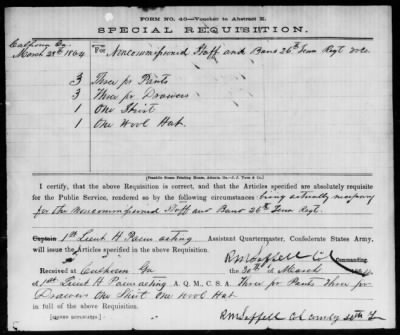 FORM NO. 40—Voucher to Abstract K.
SPECIAL REQUISITION.
Calhoun Ga
March 28th 1864
For Noncommissioned Staff and Band 26th Tenn Regt vols
3 Three pr Pants
3 Three pr Drawers
1 One Shirt
1 One Wool Hat.
[Franklin Steam Printing House, Atlanta, Ga.—J. J. Toon & Co.]
I certify, that the above Requisition is correct, and that the Articles specified are absolutely requisite
for the Public Service, rendered so by the following circumstances: being actually necessary
for the noncommissioned Staff and Band 26th Tenn Regt.
Captain 1st Lieut H Paim acting Assistant Quartermaster, Confederate States Army,
will issue the Articles specified in the above Requisition.
R M Saffell Col
Commanding.
Received at Calhoun Ga the 30th of March 1864
of 1st Lieut H Paim acting A. Q. M. C. S. A. Three pr Pants Three pr
Drawers One Shirt One Wool Hat
in full of the above Requisition.
R M Saffell Col comdg 26th Tn
[SIGNED DUPLICATES.]